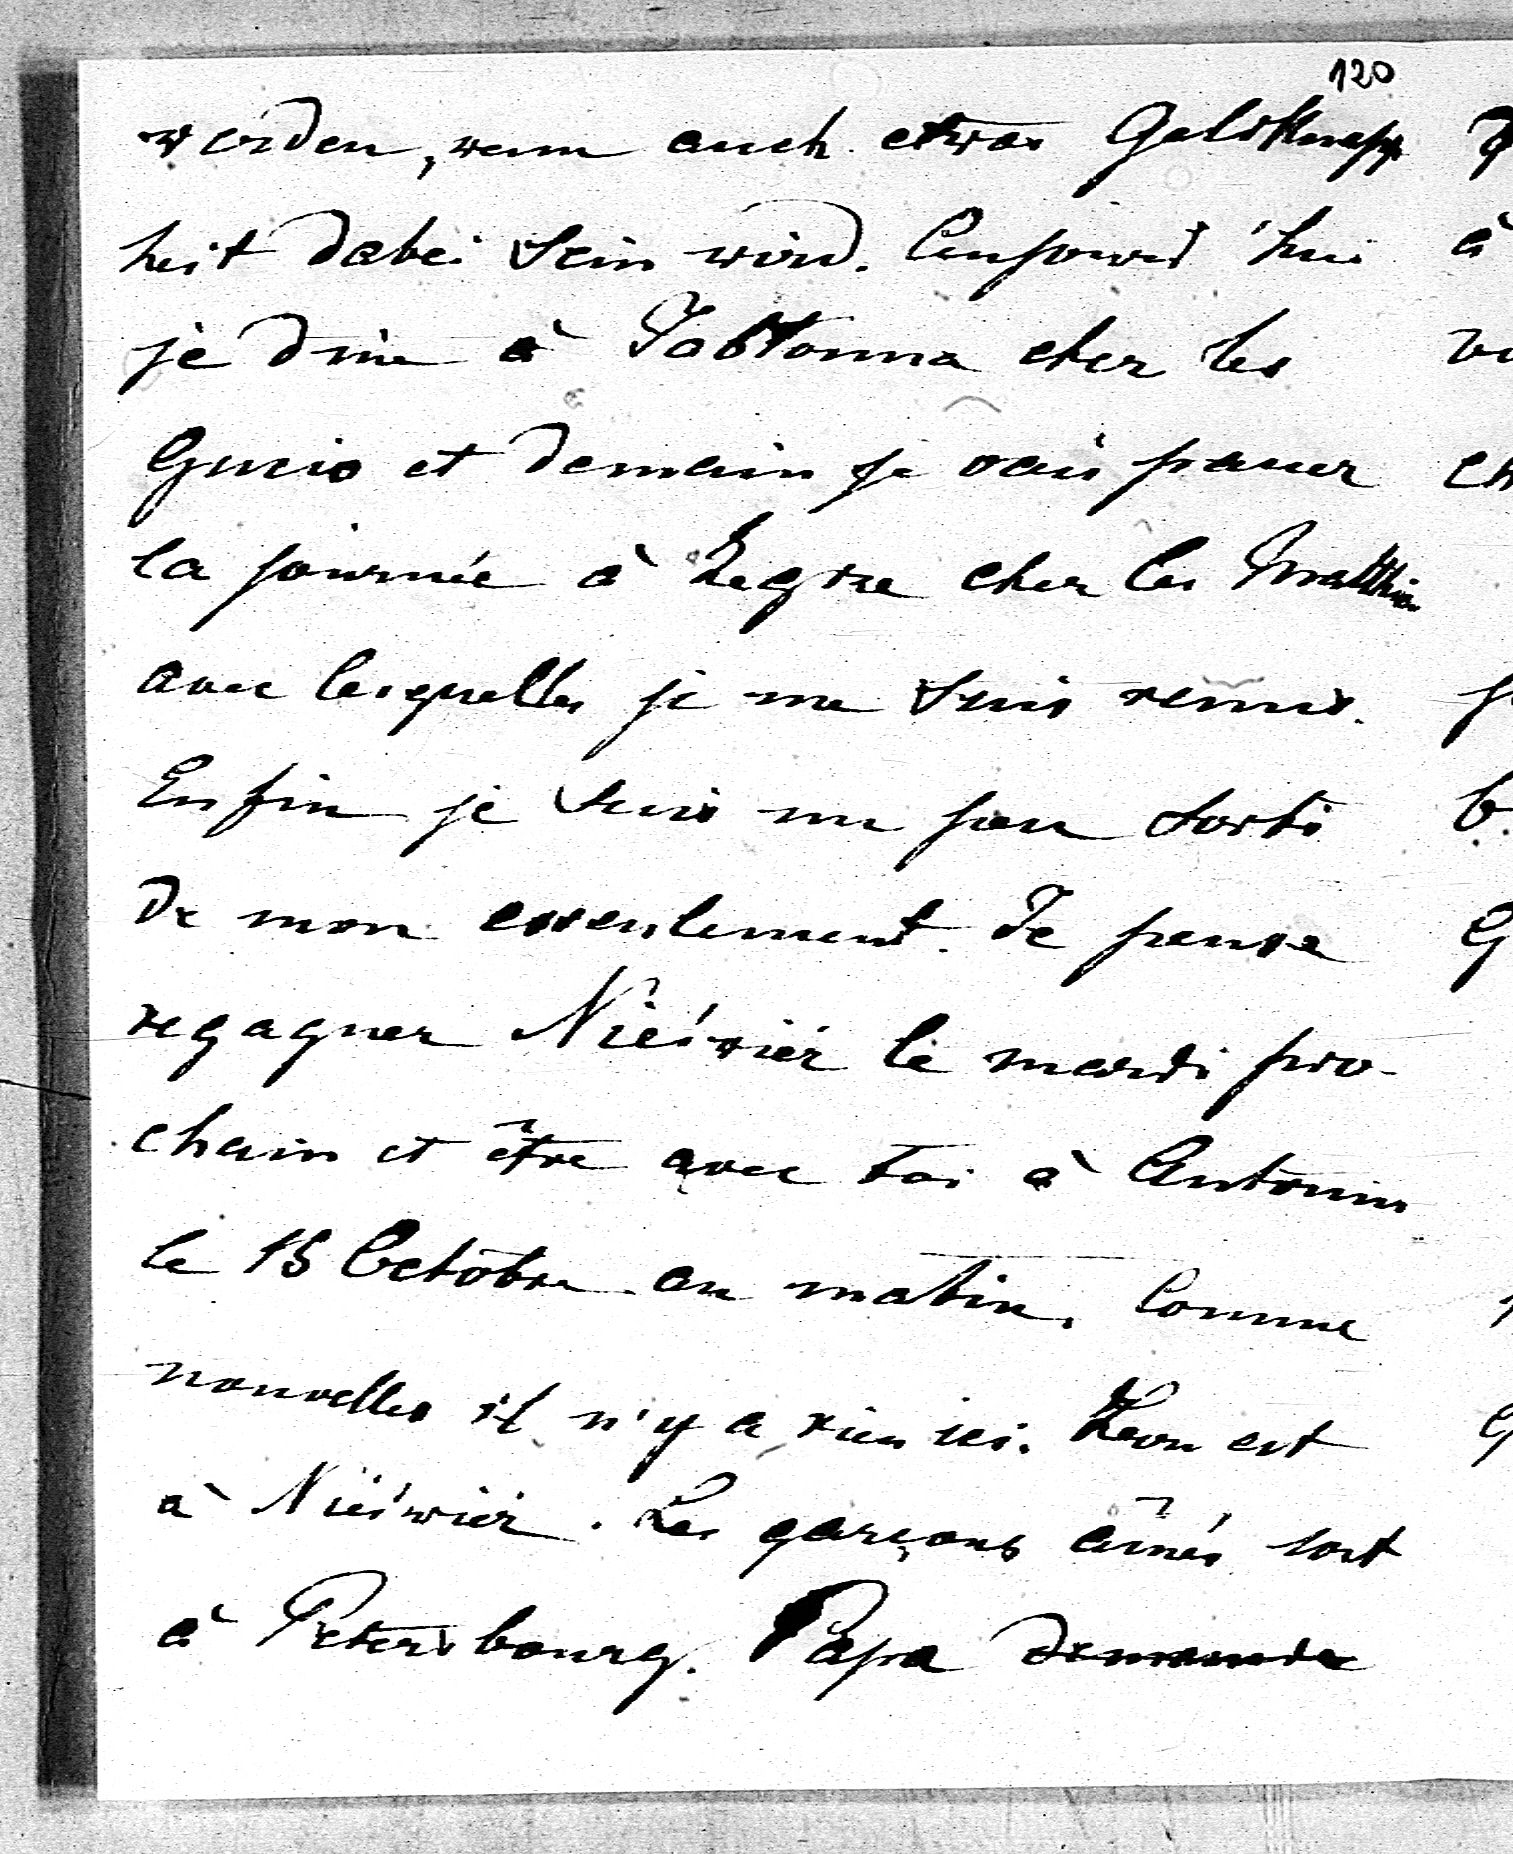 120
werden, wenn auch etwas Geldknapp
heit dabei sein wird. Aujourd'hui
je dine à Jabłonna chez les
Gucio et demain je vais passer
la journée à Zegrze chez les Matthias
avec lesquelles je me suis remis.
Enfin je suis un peu sorti
de mon esseulement. Je pense
regagner Nieśwież le mardi pro-
chain et être avec toi à Antonin
le 15 Octobre au matin. Comme
nouvelles il n'y a rien ici. Leon est
à Nieśwież. Les garçons aînés sont
à Petersbourg. Papa demande